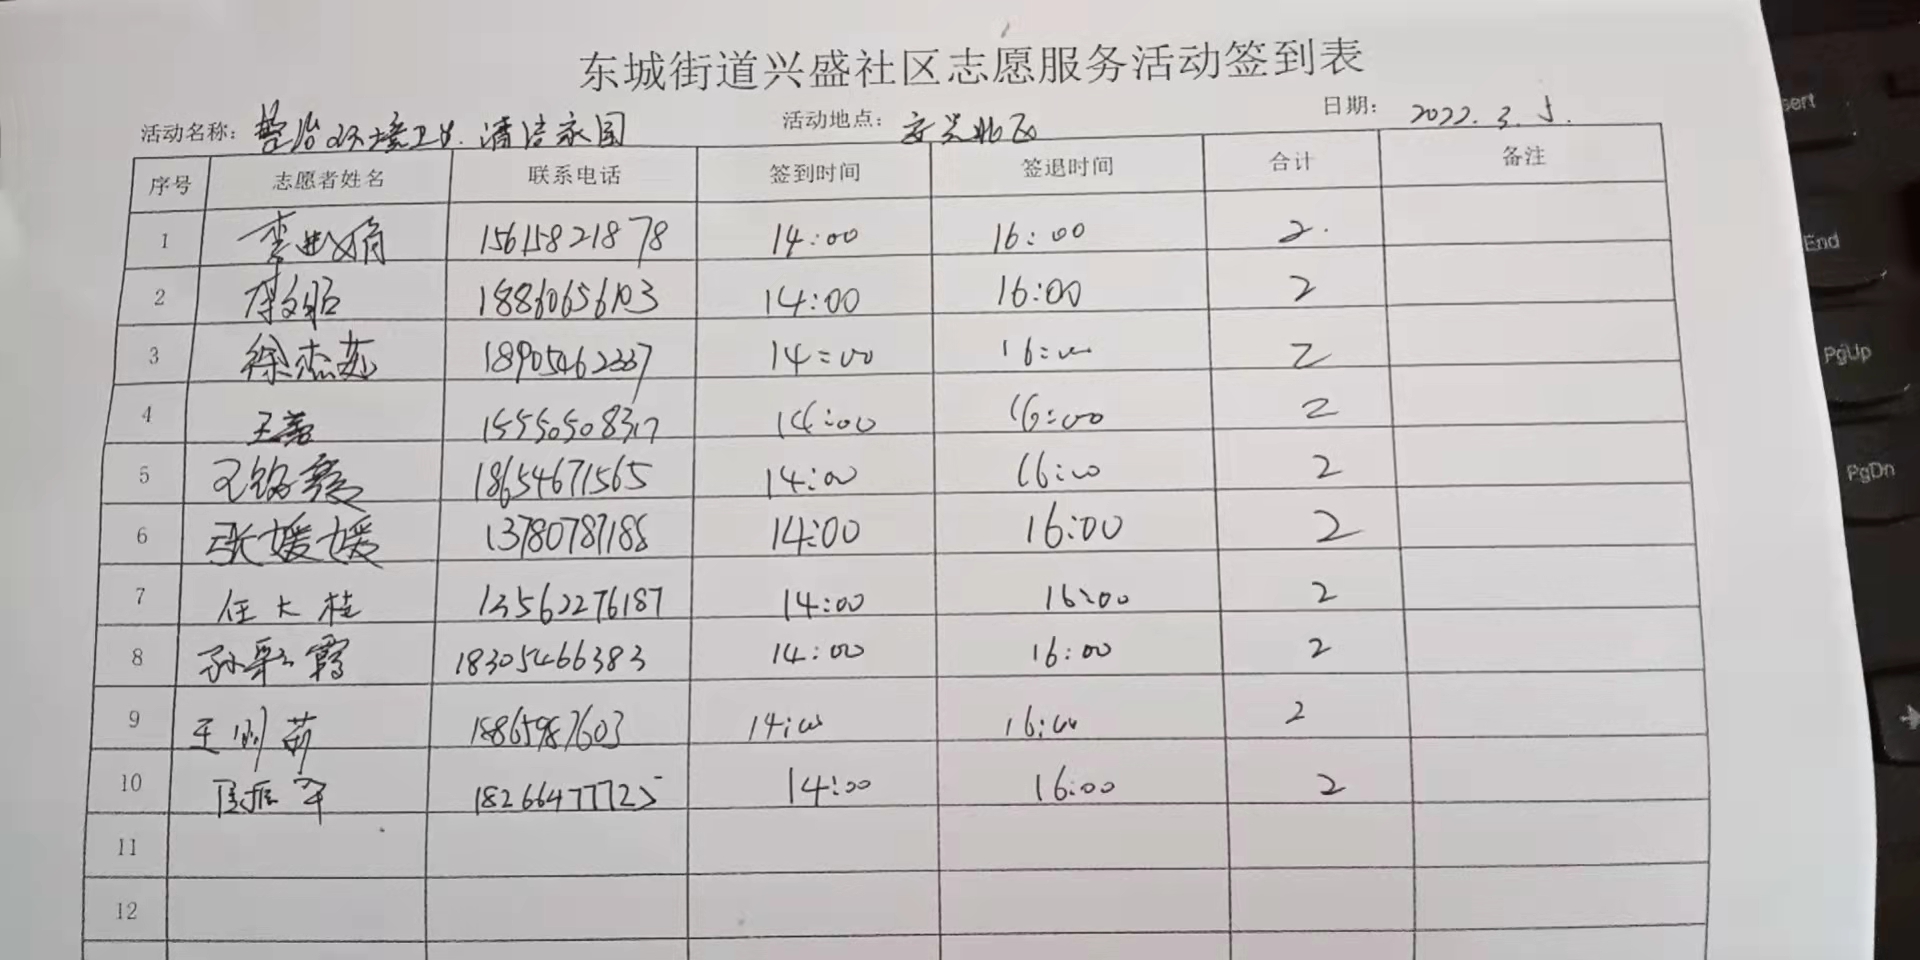 东城街道兴盛社区志愿服务活动签到表
活动名称: 整治环境卫生.清洁家园 活动地点: 安兴北区 日期: 2022.3.5.
序号 志愿者姓名 联系电话 签到时间 签退时间 合计 备注
1 15615821878 14:00 16:00 2.
2 18860656103 14:00 16:00 2
3 徐杰 14:00 16:00 2
4 王 14:00 16:00 2
5 王铭霞 18654671565 14:00 16:00 2
6 张媛媛 13780787188 14:00 16:00 2
7 任大桂 13562276187 14:00 16:00 2
8 孙彩霞 18305466383 14:00 16:00 2
9 王 18865987603 14:00 16:00 2
10 18266477725 14:00 16:00 2
11
12
sert
End
PgUp
PgDn